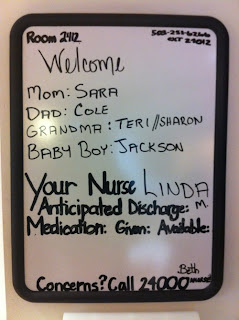 Room 2412
503-251-6266
EXT 24012
Welcome
MOM: SARA
DAD: COLE
GRANDMA: TERI//SHARON
BABY BOY: JACKSON
Your Nurse LINDA
Anticipated Discharge: M.
Medication: Given: Available:
Beth
Concerns? Call 24000